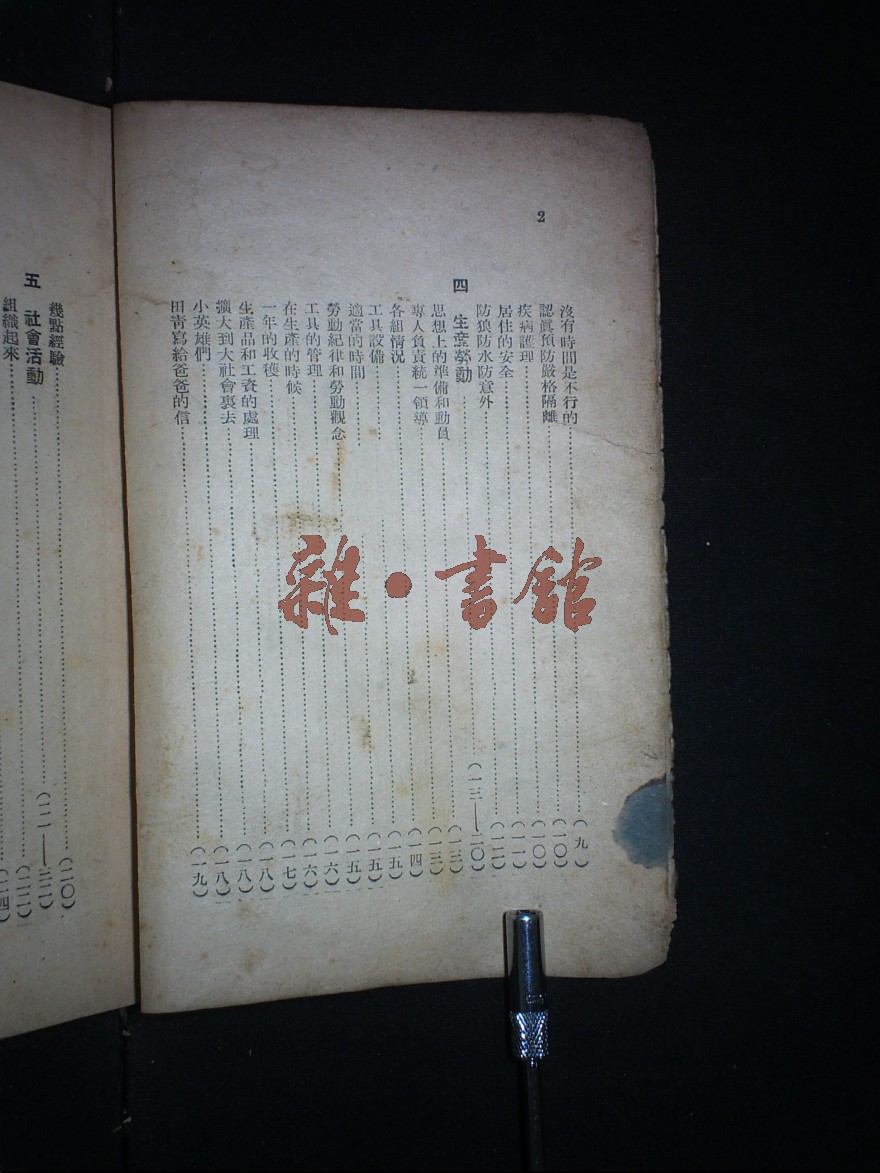 2
沒有時間是不行的……(九)
認眞預防嚴格隔離……(一〇)
疾病護理……(一〇)
居住的安全……(一一)
防狼防水防意外……(一二)
四 生產勞動……(一三—二〇)
思想上的準備和動員……(一三)
專人負責統一領導……(一三)
各組情況……(一四)
工具設備……(一五)
適當的時間……(一五)
勞動紀律和勞動觀念……(一五)
工具的管理……(一六)
在生產的時候……(一六)
一年的收穫……(一七)
生產品和工資的處理……(一八)
擴大到大社會裏去……(一八)
小英雄們……(一八)
田靑寫給爸爸的信……(一九)
幾點經驗……(二〇)
五 社會活動……
組織起來……
雜·書館